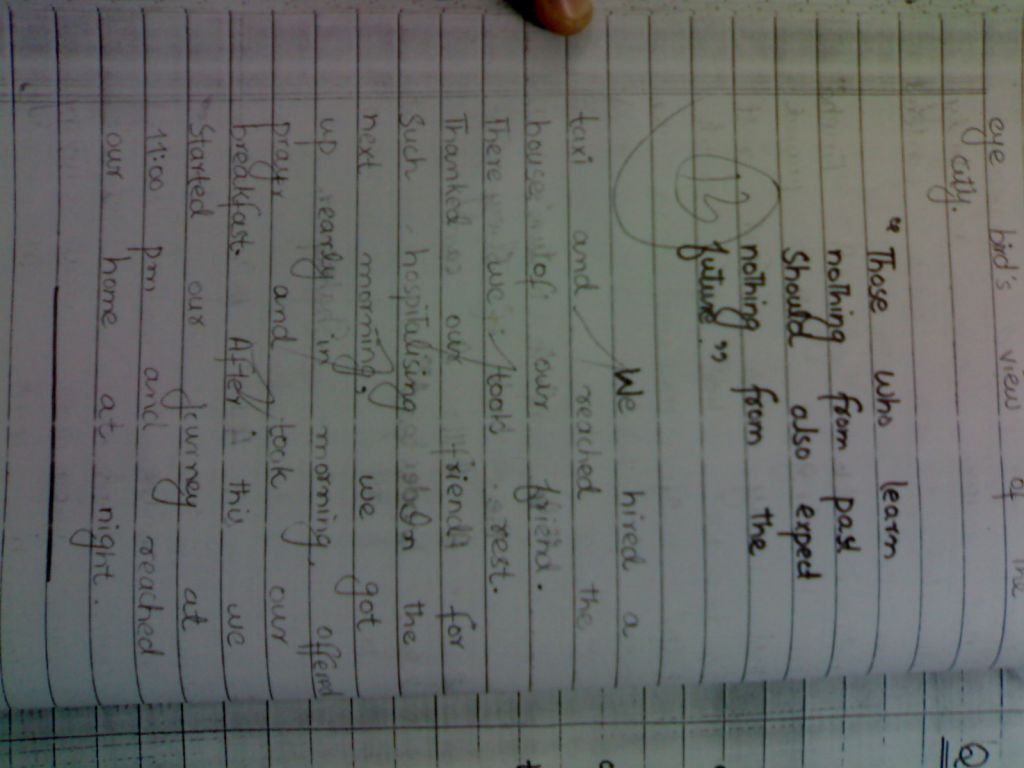 eye bird's view of the
city.
"Those who learn
nothing from past
should also exped
nothing from the
future"
12
We hired a
taxi and reached the
house of our friend.
There we took rest.
Thanked our friends for
such hospitalising on the
next morning, we got
up early in morning, offered
prayr and took our
breakfast. After this we
started our journey at
11:00 pm and reached
our home at night.
Q